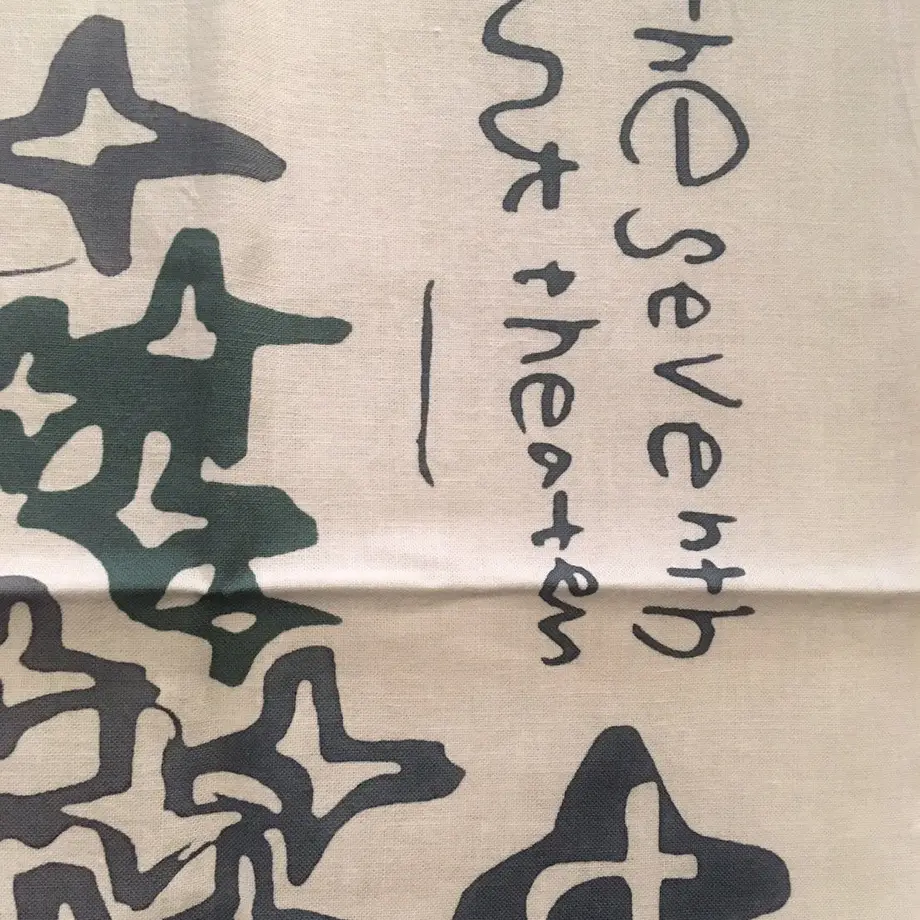 he seventh
nt theaten